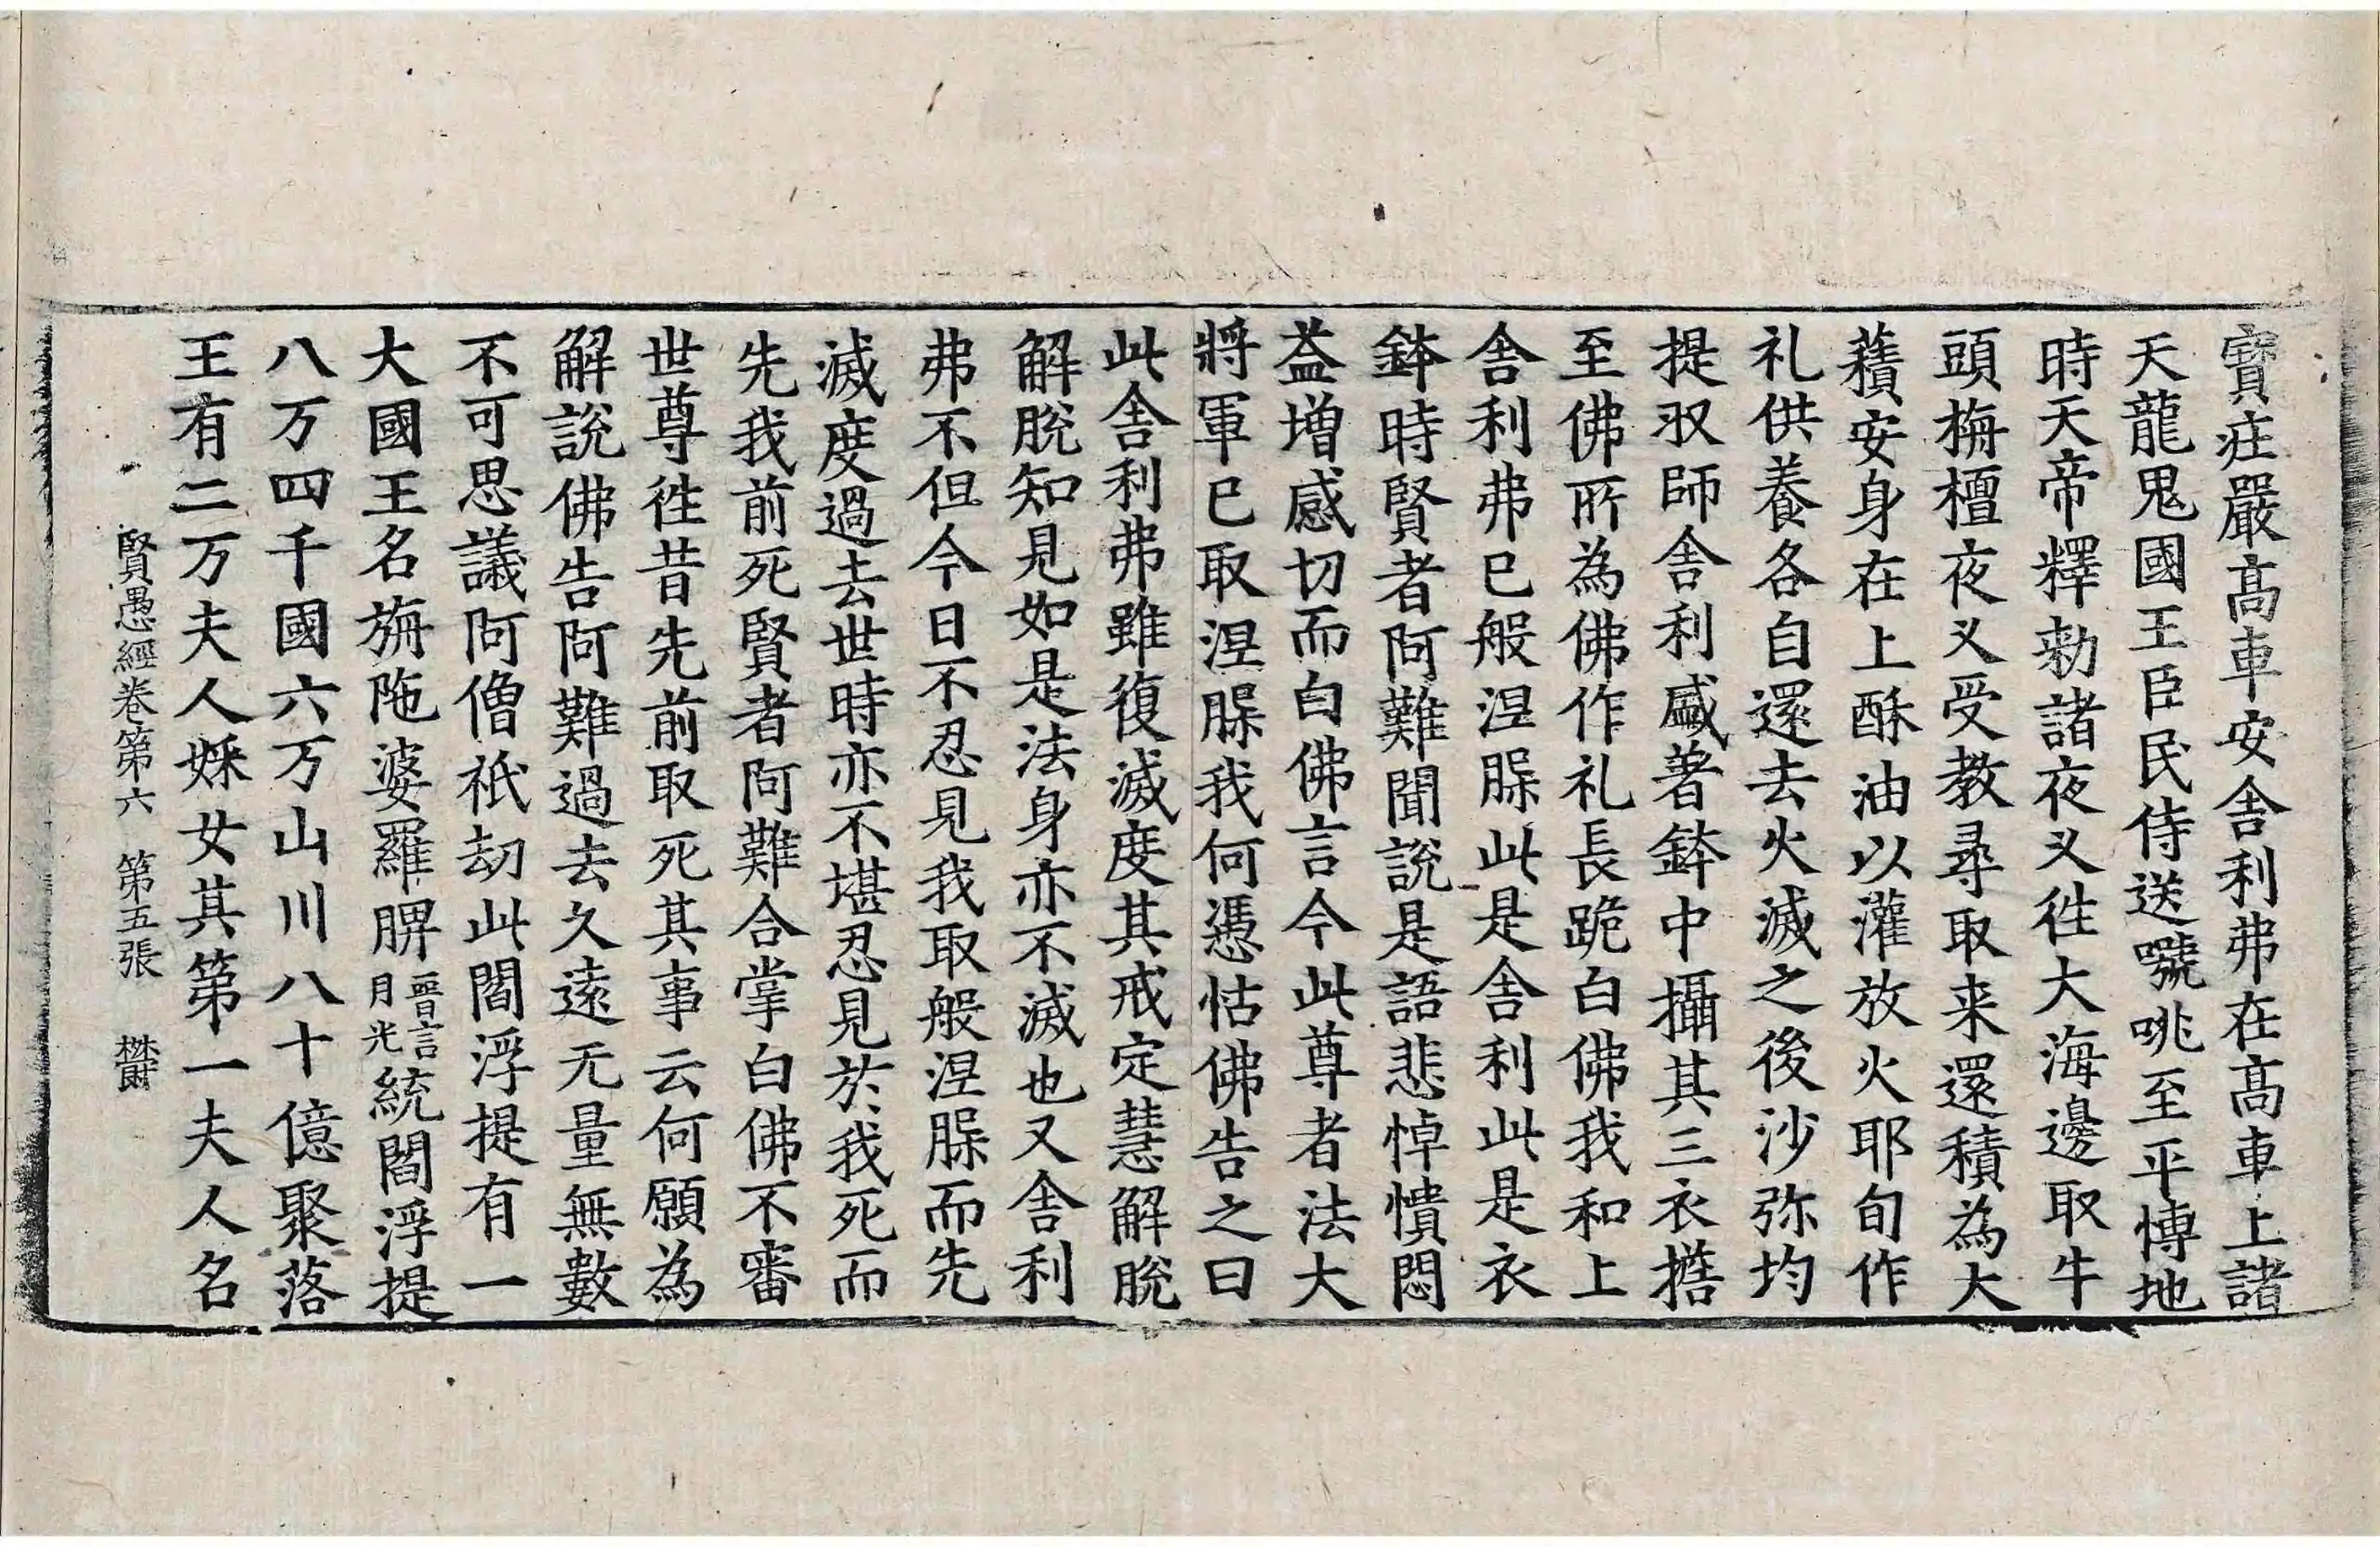 寶㽵嚴髙車安舎利弗在髙車上諸
天龍鬼國王臣民侍送號咷至平博地
時天帝釋勑諸夜叉徃大海邊取牛
頭栴檀夜叉受教尋取来還積為大
𧂐安身在上酥油以灌放火耶旬作
礼供養各自還去火滅之後沙弥均
提収師舎利盛著鉢中攝其三衣擔
至佛所為佛作礼長跪白佛我和上
舎利弗已般涅槃此是舎利此是衣
鉢時賢者阿難聞說是語悲悼憒悶
益增感切而白佛言今此尊者法大
將軍已取涅槃我何憑怙佛告之曰
此舎利弗雖復滅度其戒定慧解脫
解脫知見如是法身亦不滅也又舎利
弗不但今日不忍見我取般涅槃而先
滅度過去世時亦不堪忍見於我死而
先我前死賢者阿難合掌白佛不審
世尊徃昔先前取死其事云何願為
解說佛告阿難過去久遠无量無數
不可思議阿僧祇劫此閻浮提有一
大國王名旃陁婆羅脾晉言月光統閻浮提
八万四千國六万山川八十億聚落
王有二万夫人婇女其第一夫人名
賢愚經卷第六 第五張 欝